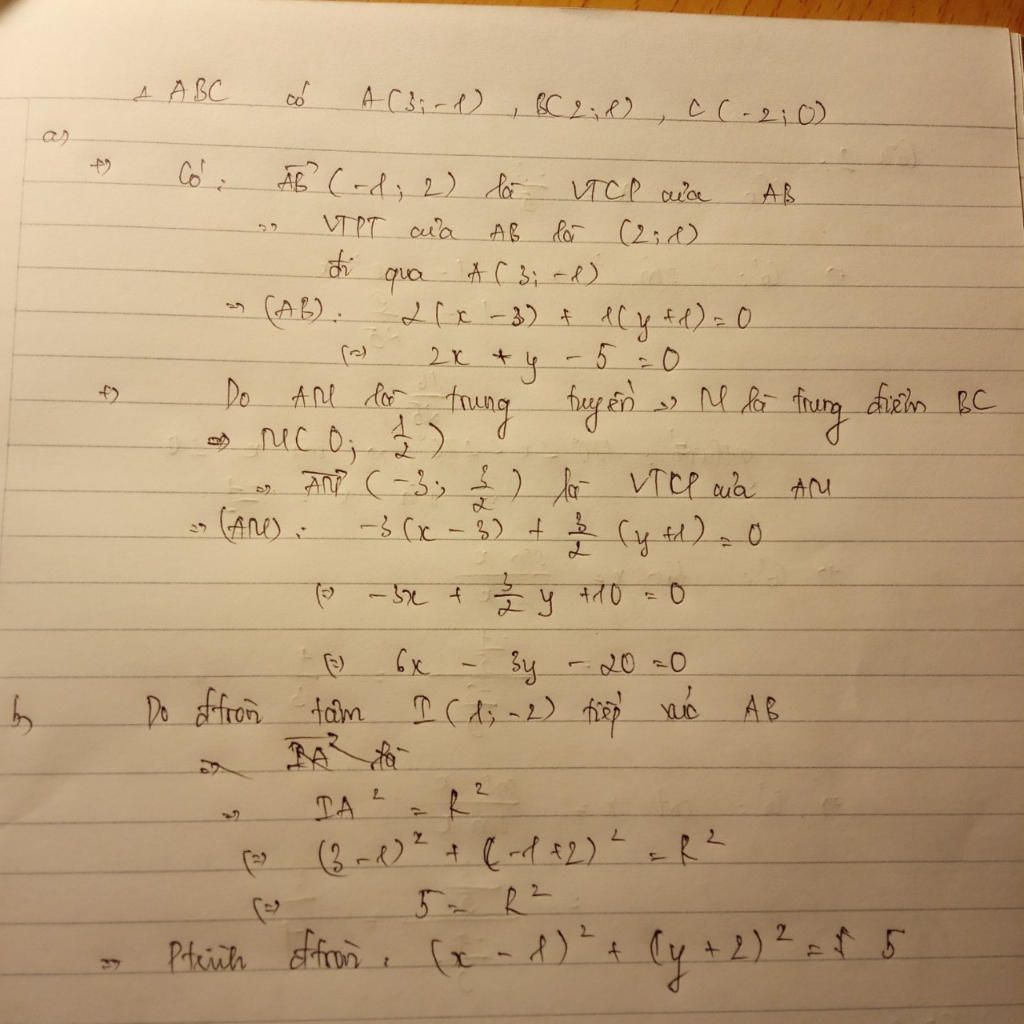 Δ ABC có A(3;-1), B(2;1), C(-2;0)
a)
+) Có: AB⃗ (-1; 2) là VTCP của AB
=> VTPT của AB là (2;1)
đi qua A(3;-1)
=> (AB): 2(x-3) + 1(y+1) = 0
(=) 2x + y - 5 = 0
+) Do AM là trung tuyến => M là trung điểm BC
=> M(0; 1/2)
=> AM⃗ (-3; 3/2) là VTCP của AM
=> (AM): -3(x-3) + 3/2 (y+1) = 0
(=) -3x + 3/2 y + 10 = 0
(=) 6x - 3y - 20 = 0
b) Do đtròn tâm I(1;-2) tiếp xúc AB
=> IA⃗ là
=> IA² = R²
(=) (3-1)² + (-1+2)² = R²
(=) 5 = R²
=> Ptrình đtròn: (x-1)² + (y+2)² = 5